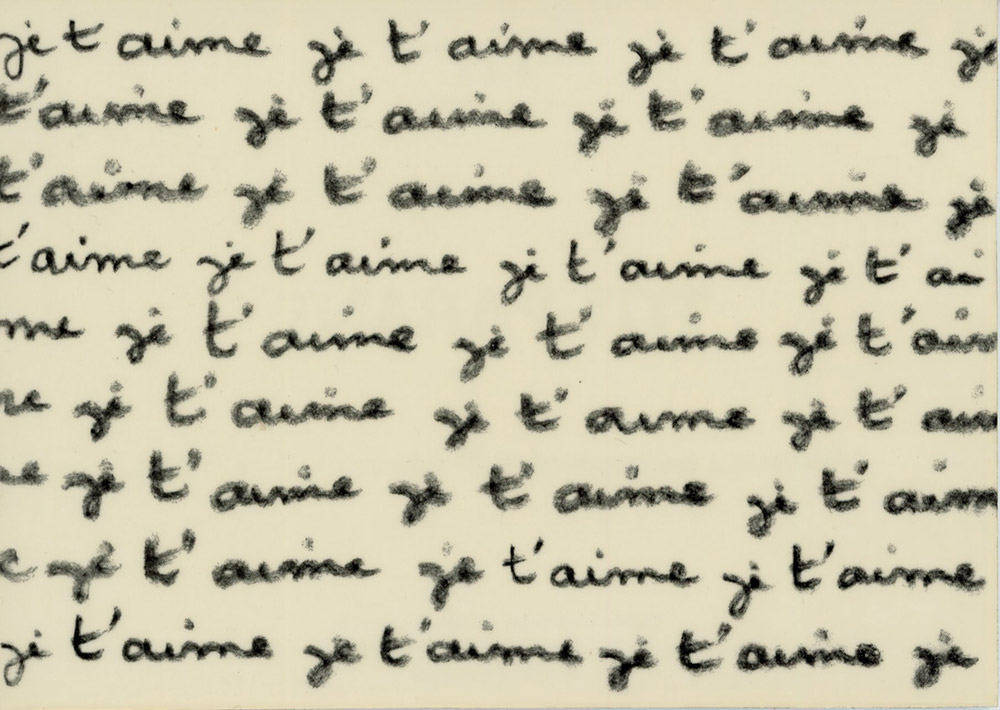 je t'aime je t'aime je t'aime je
t'aime je t'aime je t'aime je
t'aime je t'aime je t'aime je
t'aime je t'aime je t'aime je t'ai
me je t'aime je t'aime je t'aim
me je t'aime je t'aime je t'aim
me je t'aime je t'aime je t'aim
e je t'aime je t'aime je t'aime
je t'aime je t'aime je t'aime je